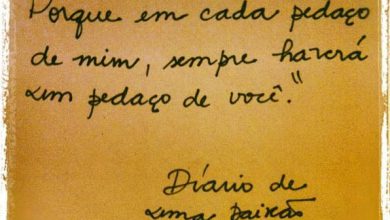 Porque em cada pedaço
de mim, sempre haverá
um pedaço de você."
Diário de
uma Paixão